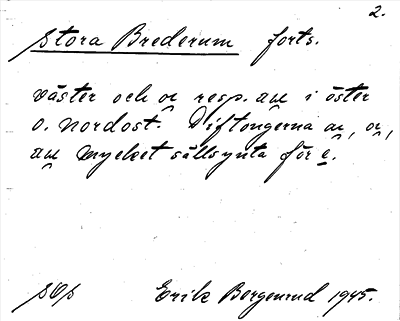 2.
Stora Brederum forts.
väster och o͡e resp. a͡u i öster
o. nordost. Diftongerna a͡e, o͡e,
a͡u mycket sällsynta för e.
Erik Bergerud 1945.